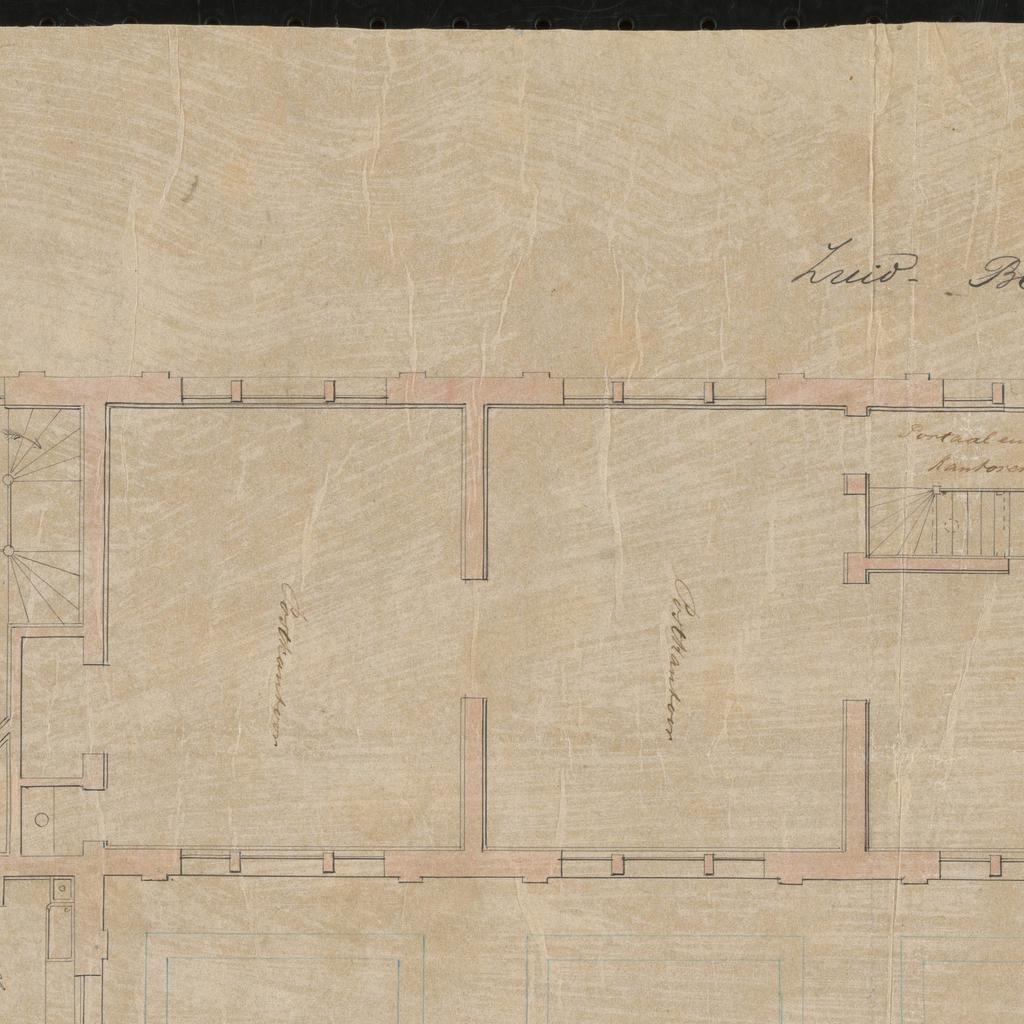 Zuid-
Portaal en
kantoren
Postkantoor
Postkantoor